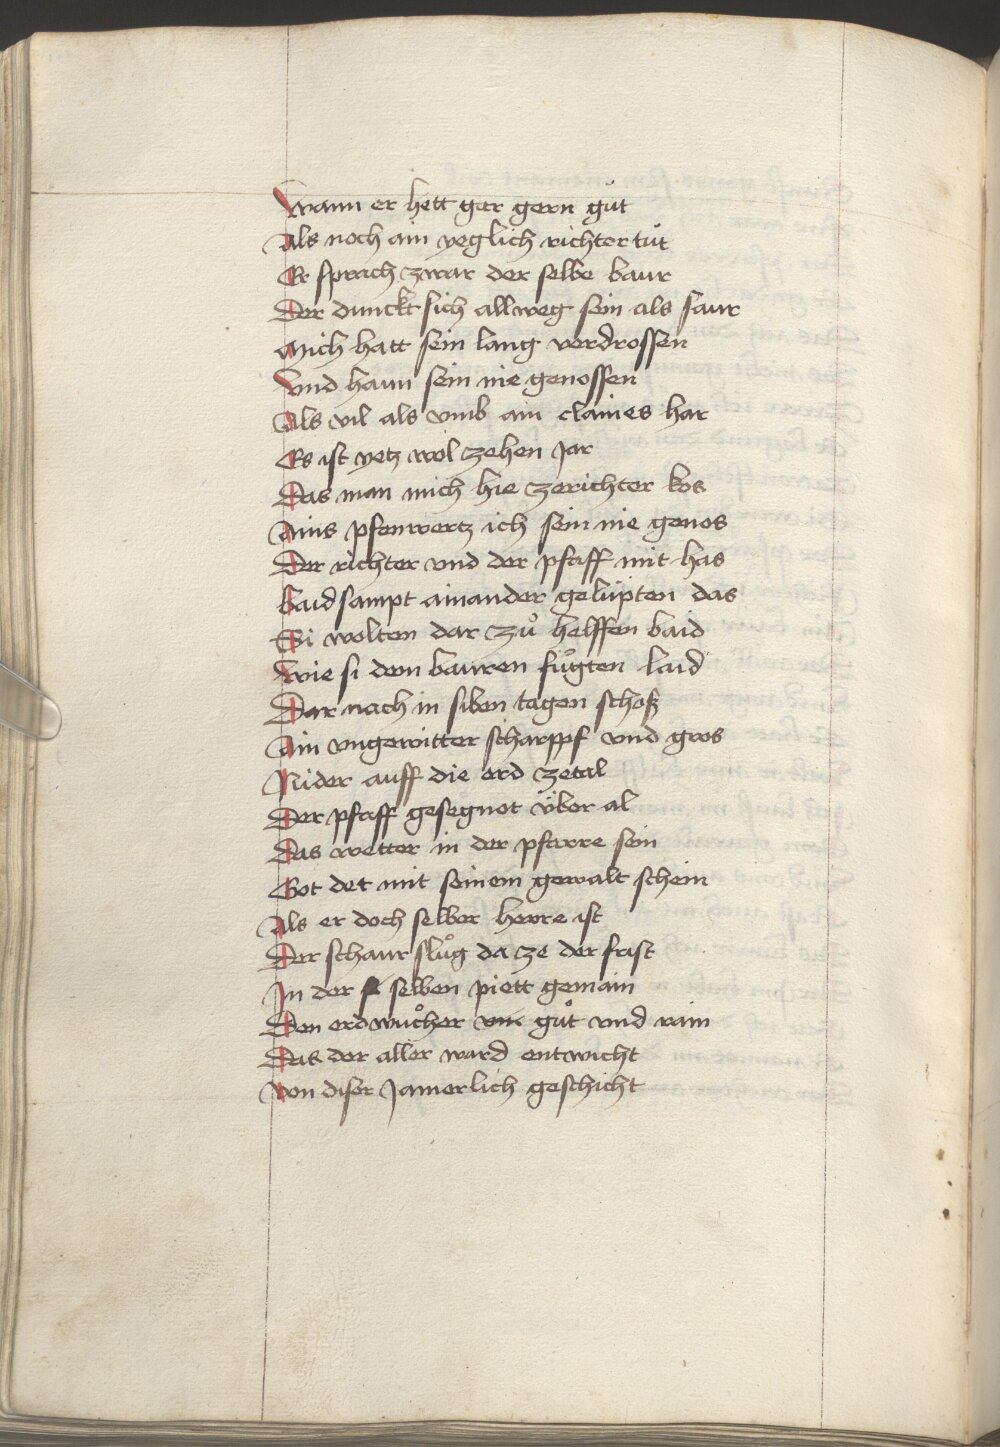 Wann er hett gar gern gůt
Als noch ain yeglich richter tůt
Er sprach zwar der selbe baur
Der dunckt sich allweg sein als saur
Mich hatt sein lang verdrossen
Vnd hann sein nie genossen
Als vil als vmb ain claines har
Es ist yetz wol zehen Jar
Das man mich hie zerichter kos
Ains pfenwertz ich sein nie genos
Der richter vnd der pfaff mit has
baid sampt ainander gelüpten das
Si wolten dar zů helffen baid
wie si dem bauren fůgten laid
Dar nach in siben tagen schoß
Ain vngewitter scharppf vnd gros
Nider auff die erd zetal
Der pfaff gesegnot über al
Das wetter in der pfarre sein
Got det mit seinem gewalt schein
Als er doch selber herre ist
Der schaur slůg da ze der frist
In der selben piett gemain
Den erdwůcher vnc gůt vnd rain
Das der aller ward entwicht
Von diser Jamerlich geschicht